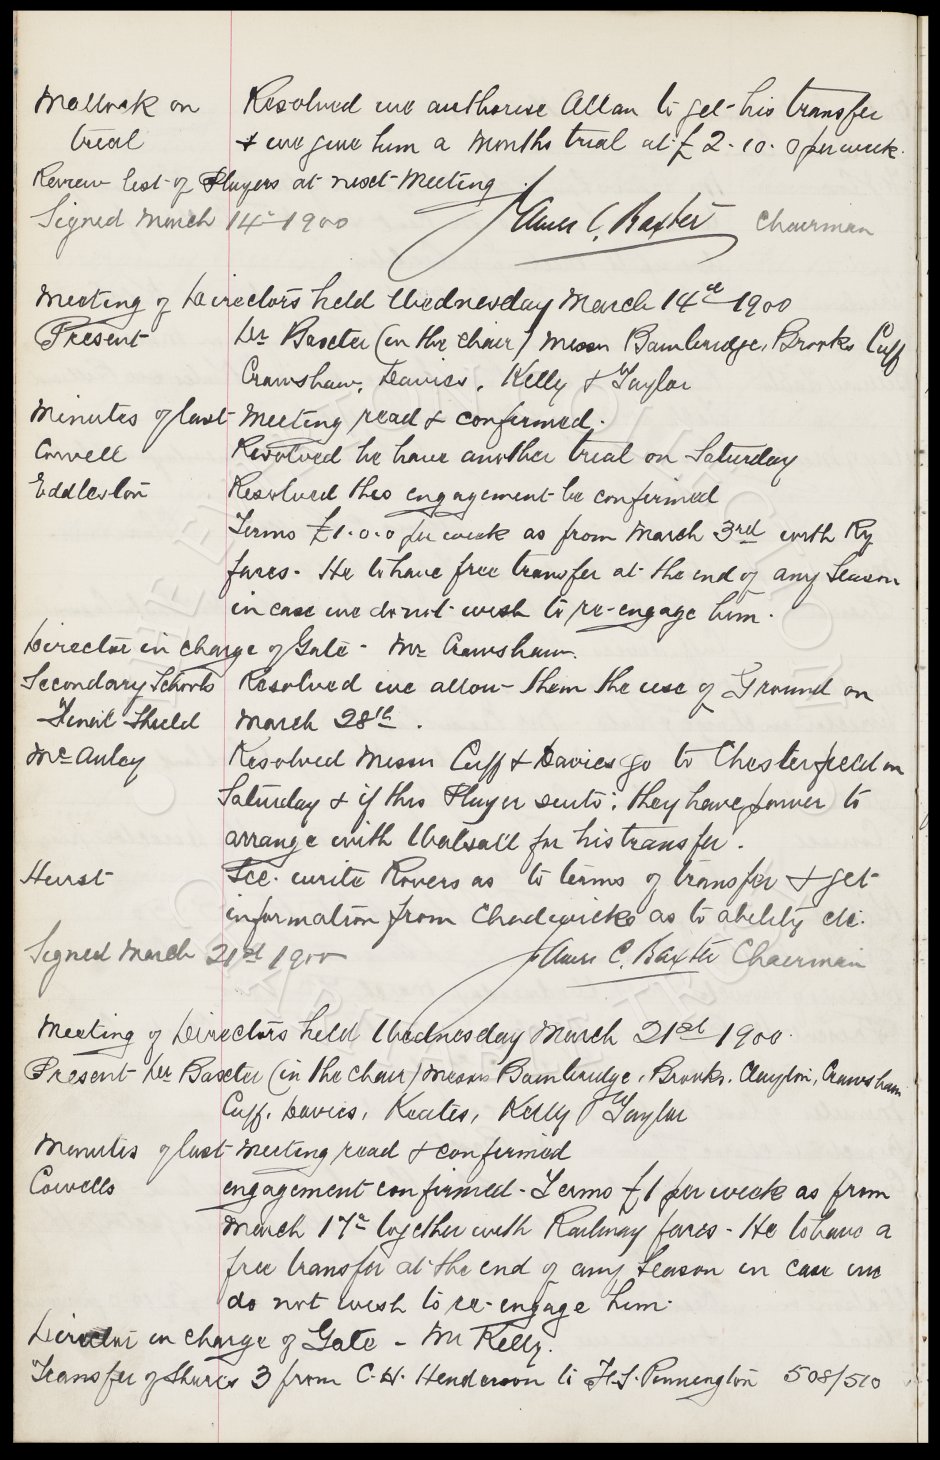 Mollock on Resolved we authorise Allan to get his transfer
trial & we give him a months trial at £2.10.0 per week.
Review list of Players at next Meeting
Signed March 14th 1900 James C. Baxter Chairman
Meeting of Directors held Wednesday March 14th 1900
Present Dr Baxter (in the chair) Messrs Bainbridge, Brooks Cuff
Crawshaw, Davies, Kelly & Taylor
Minutes of last Meeting read & confirmed.
Cowell Resolved he have another trial on Saturday
Eddleston Resolved this engagement be confirmed
Terms £1.0.0 per week as from March 3rd with Ry
fares. He to have free transfer at the end of any Season
in case we do not wish to re-engage him.
Director in charge of Gate - Mr Crawshaw.
Secondary Schools Resolved we allow them the use of Ground on
Shield March 28th.
McAuley Resolved Messrs Cuff & Davies go to Chesterfield on
Saturday & if this Player suits, they have power to
arrange with Walsall for his transfer.
Hurst Sec. write Rovers as to terms of transfer & get
information from Chadwicke as to ability etc.
Signed March 21st 1900 James C. Baxter Chairman
Meeting of Directors held Wednesday March 21st 1900.
Present Dr Baxter (in the chair) Messrs Bainbridge, Brooks, Clayton, Crawshaw
Cuff, Davies, Keates, Kelly & Taylor
Minutes of last Meeting read & confirmed
Cowells engagement confirmed - Terms £1 per week as from
March 17th together with Railway fares - He to have a
free transfer at the end of any Season in case we
do not wish to re-engage him.
Director in charge of Gate - Mr Kelly.
Transfer of Shares 3 from C.H. Henderson to F.S. Pennington 508/510